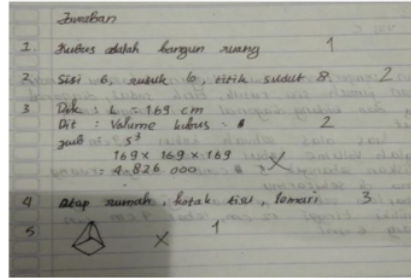 Jawaban
1. Kubus adalah bangun ruang 1
2. Sisi 6, rusuk 6, titik sudut 8. 2
3 Dik : L = 169 cm
Dit : Volume kubus = 2
Jwb S³
169 x 169 x 169
= 4.826.000
4 Atap rumah, kotak tisu, lemari 3
5 1